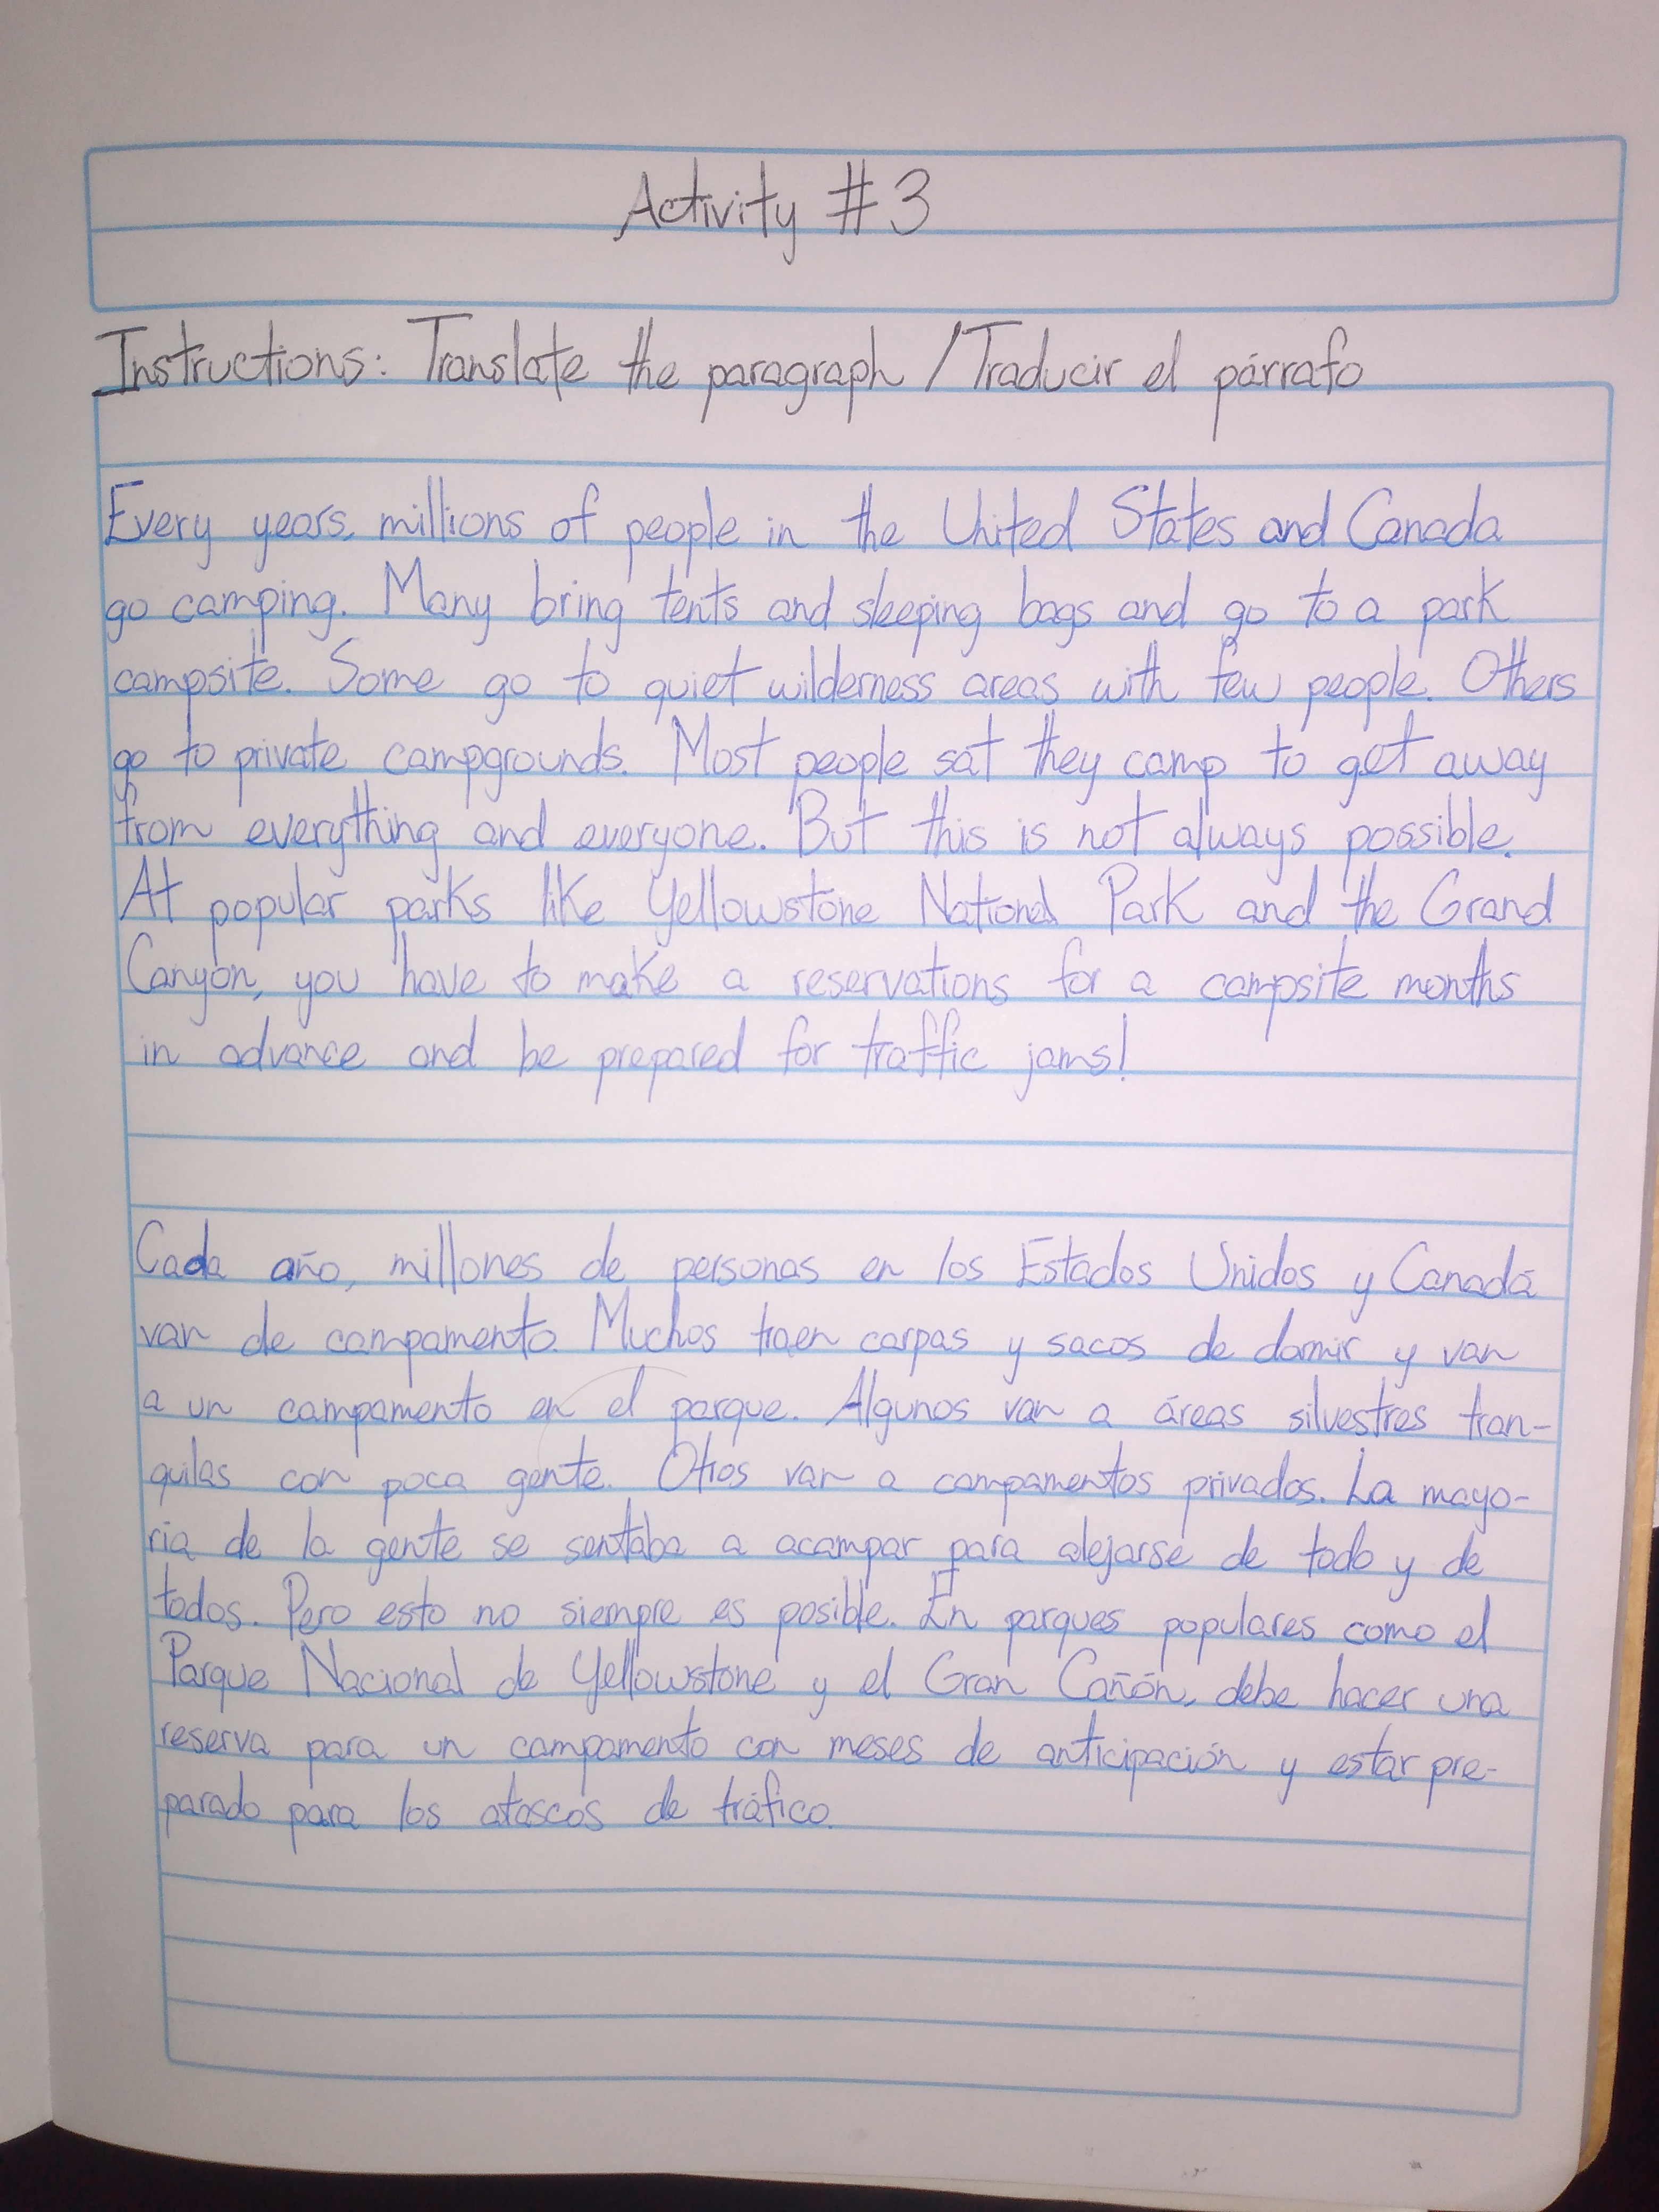 Activity #3
Instructions: Translate the paragraph / Traducir el párrafo
Every years, millions of people in the United States and Canada
go camping. Many bring tents and sleeping bags and go to a park
campsite. Some go to quiet wilderness areas with few people. Others
go to private campgrounds. Most people sat they camp to get away
from everything and everyone. But this is not always possible.
At popular parks like Yellowstone National Park and the Grand
Canyon, you have to make a reservations for a campsite months
in advance and be prepared for traffic jams!
Cada año, millones de personas en los Estados Unidos y Canadá
van de campamento. Muchos traen carpas y sacos de dormir y van
a un campamento en el parque. Algunos van a áreas silvestres tran-
quilas con poca gente. Otros van a campamentos privados. La mayo-
ria de la gente se sentaba a acampar para alejarse de todo y de
todos. Pero esto no siempre es posible. En parques populares como el
Parque Nacional de Yellowstone y el Gran Cañón, debe hacer una
reserva para un campamento con meses de anticipación y estar pre-
parado para los atascos de tráfico.